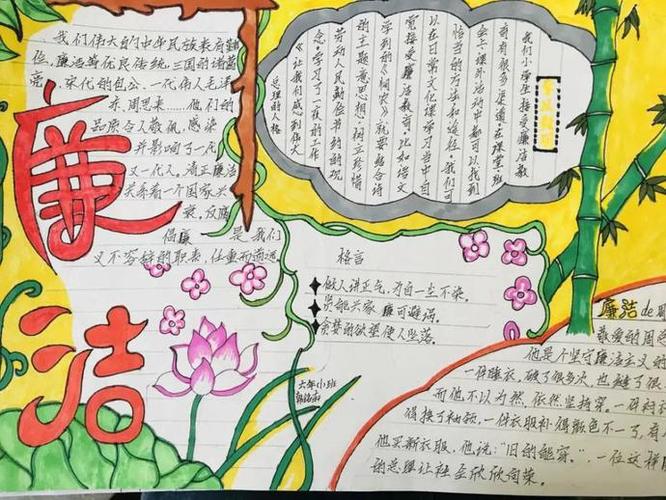 我们伟大的中华民族素有勤
俭、廉洁等优良传统,三国的诸葛
亮、宋代的包公、一代伟人毛泽
东、周恩来……他们的
品质令人敬佩,感染
并影响了一代
又一代人。清正廉洁
关系着一个国家兴
衰,反腐
倡廉 是我们
义不容辞的职责,任重而道远
廉
洁
我们小学生接受廉洁教
育有很多渠道在课堂、班
会、课外活动中都可以找到
恰当的方法和途径。我们可
以在日常文化课学习当中自
觉接受廉洁教育。比如语文
学到的《悯农》就要结合诗
的主题意思想,树立珍惜
劳动人民勤俭节约的观
念。学习了一夜的工作
《让我们感到伟大
总理的人格
格言
做人讲正气,为官一尘不染。
贤能兴家 廉可避祸。
贪婪的欲望使人坠落。
六年(1)班
廉洁de
敬爱的周恩
他是个坚守廉洁主义
一件睡衣,破了很多次,也
而他不以为然,依然坚持穿。一件衬
领换了袖领,一件衣服补得颜色不一了,有
他买新衣服,他说:“旧的能穿。”一位这样
的总理让社会欣欣向荣。